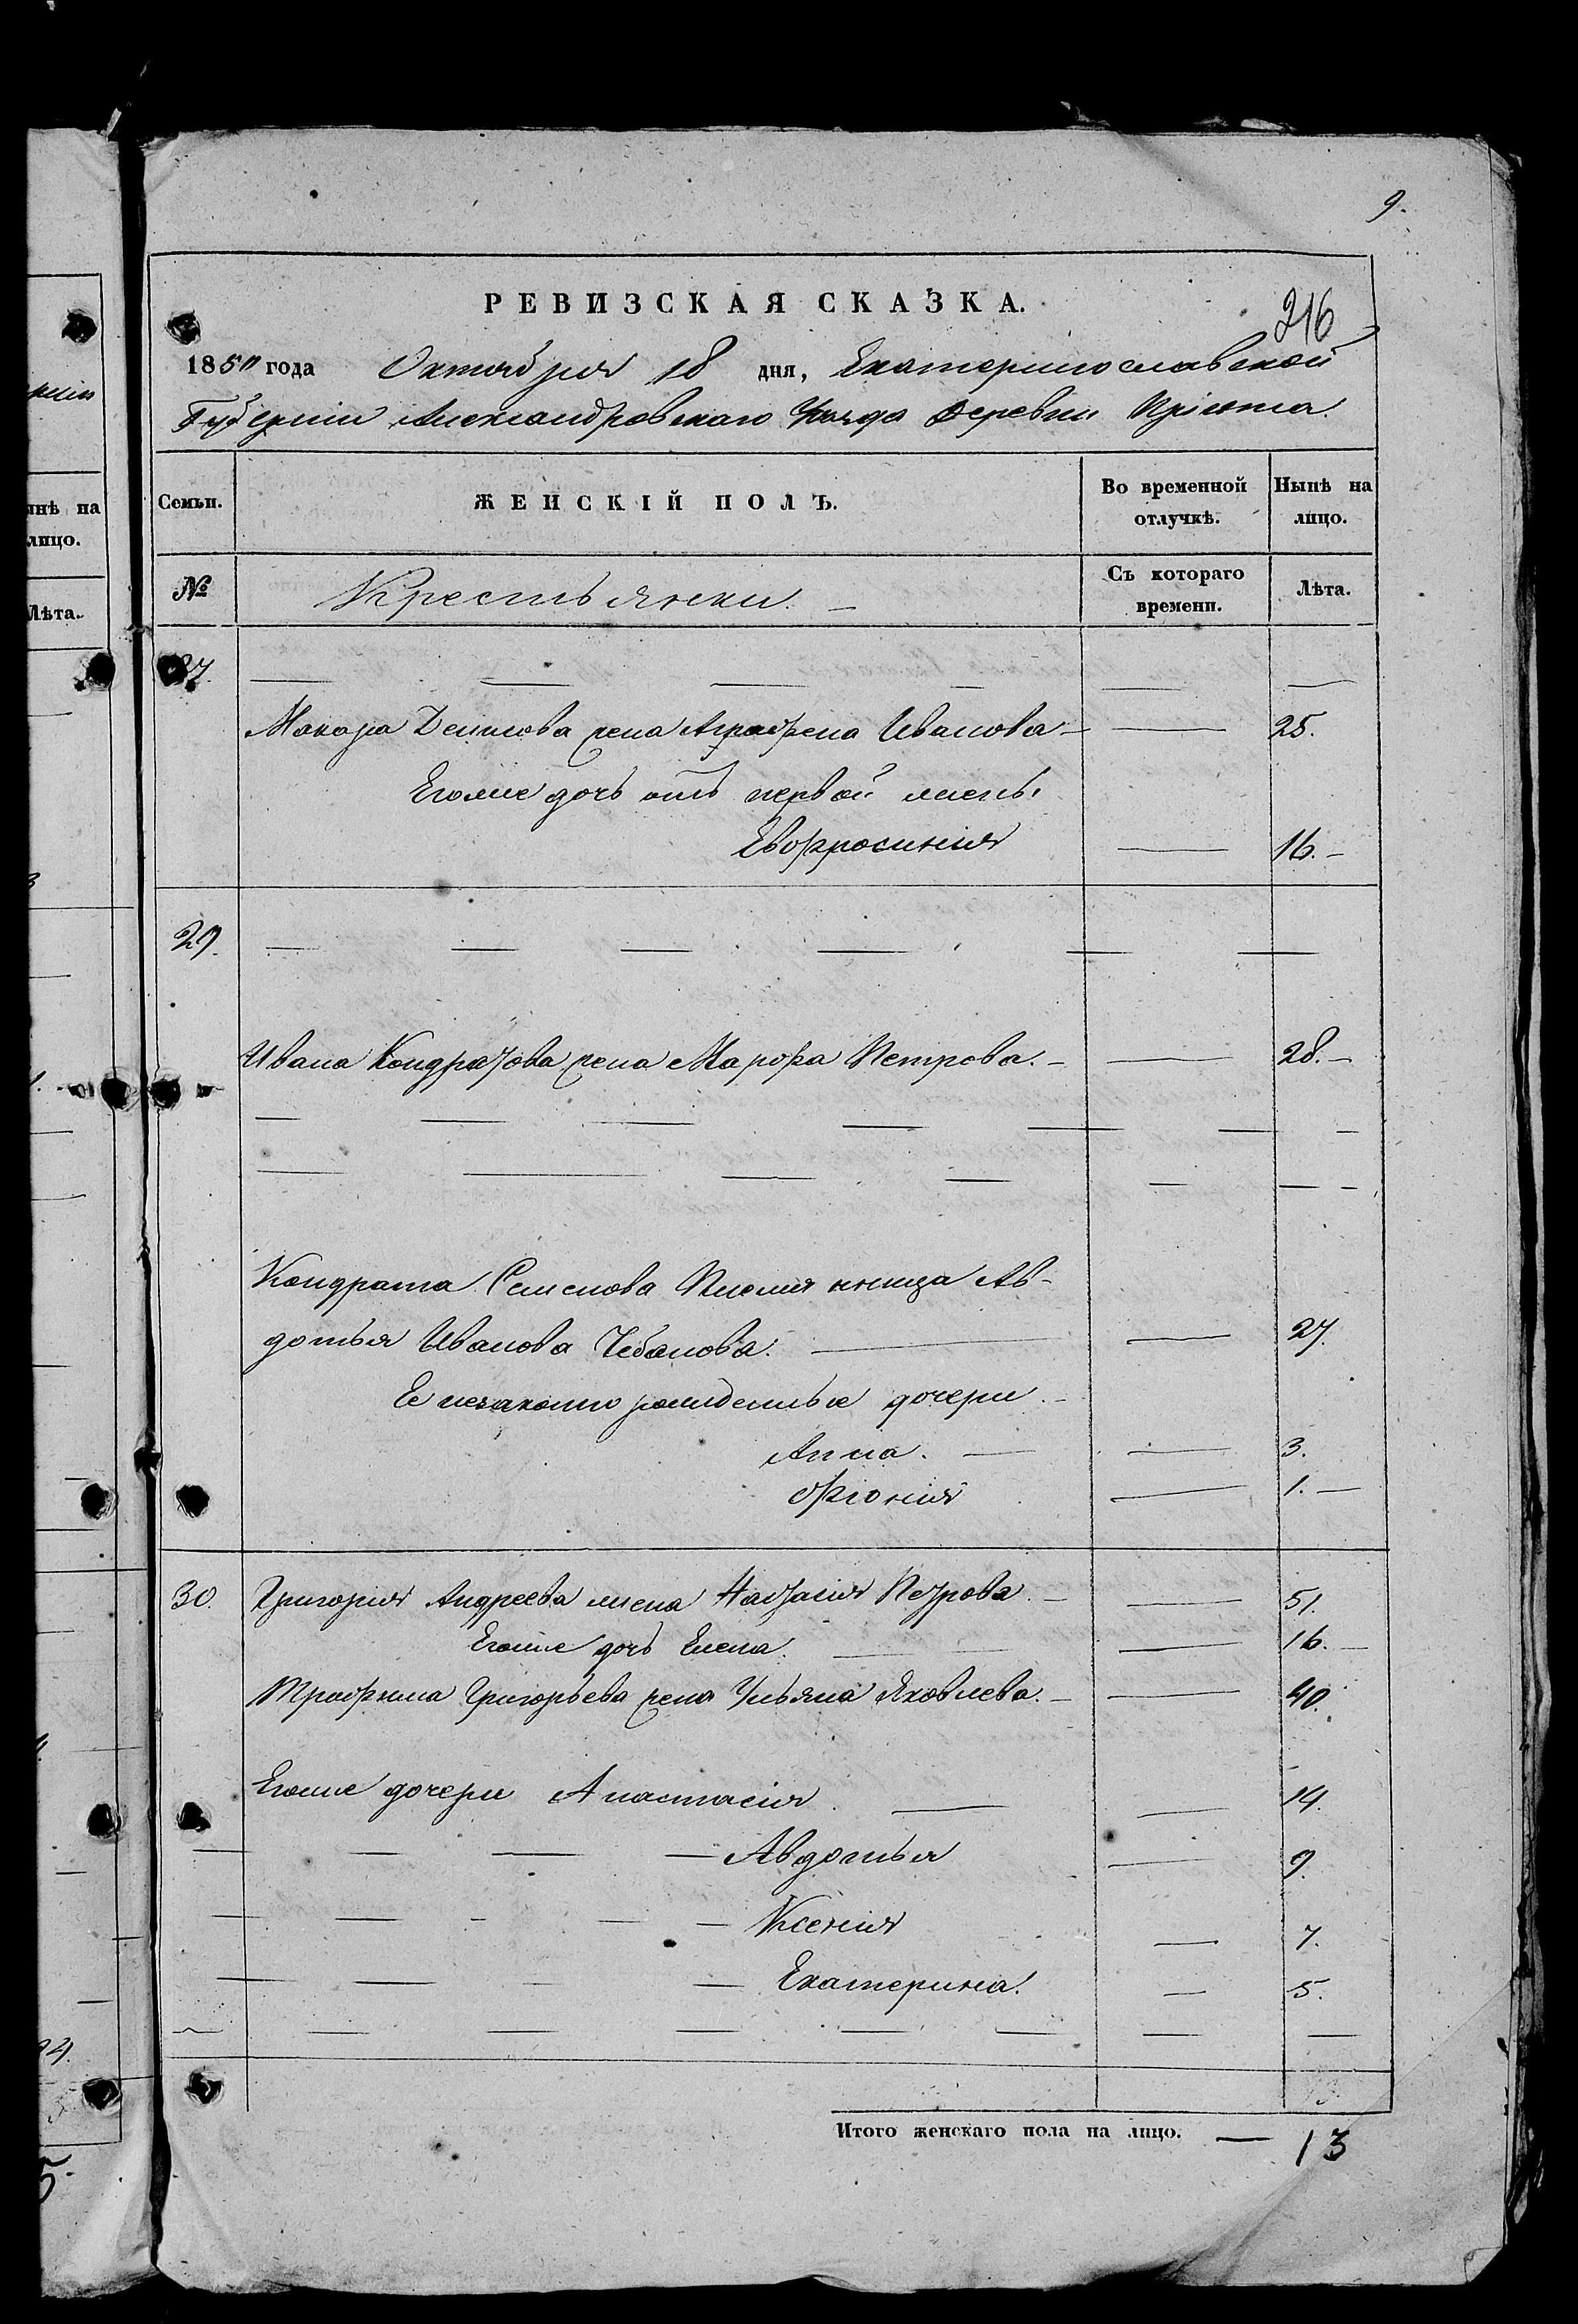 9.
РЕВИЗСКАЯ СКАЗКА.
216
1850 года Октября 18 дня, Екатеринославской
Губерніи Александровскаго Уѣзда деревни Пріюта.
Семьи. ЖЕНСКІЙ ПОЛЪ. Во временной отлучкѣ. Нынѣ на лицо.
№ Крестьянки. Съ котораго времени. Лѣта.
Макара Денисова жена Аграфена Иванова 25.
Егоже дочь отъ первой жены
Евфросинія 16.
29.
Ивана Кондратова жена Марфа Петрова. 28.
Кондрата Семенова Племянница Ав-
дотья Иванова Чебанова. 27.
Ее незаконно рожденные дочери
Анна. 3.
Фіонія 1.
30. Григорія Андреева жена Настасія Петрова. 51.
Егоже дочь Елена. 16.
Трофима Григорьева жена Ульяна Яковлева. 40.
Егоже дочери Анастасія 14.
Авдотья 9.
Ксенія 7.
Екатерина. 5.
Итого женскаго пола на лицо. 13
нѣ на
лицо.
Лѣта.